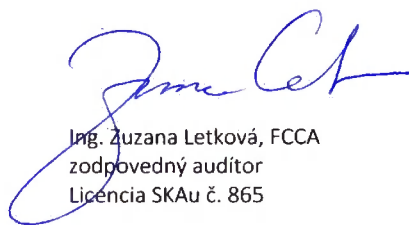 Ing. Zuzana Letková, FCCA
zodpovedný audítor
Licencia SKAu č. 865